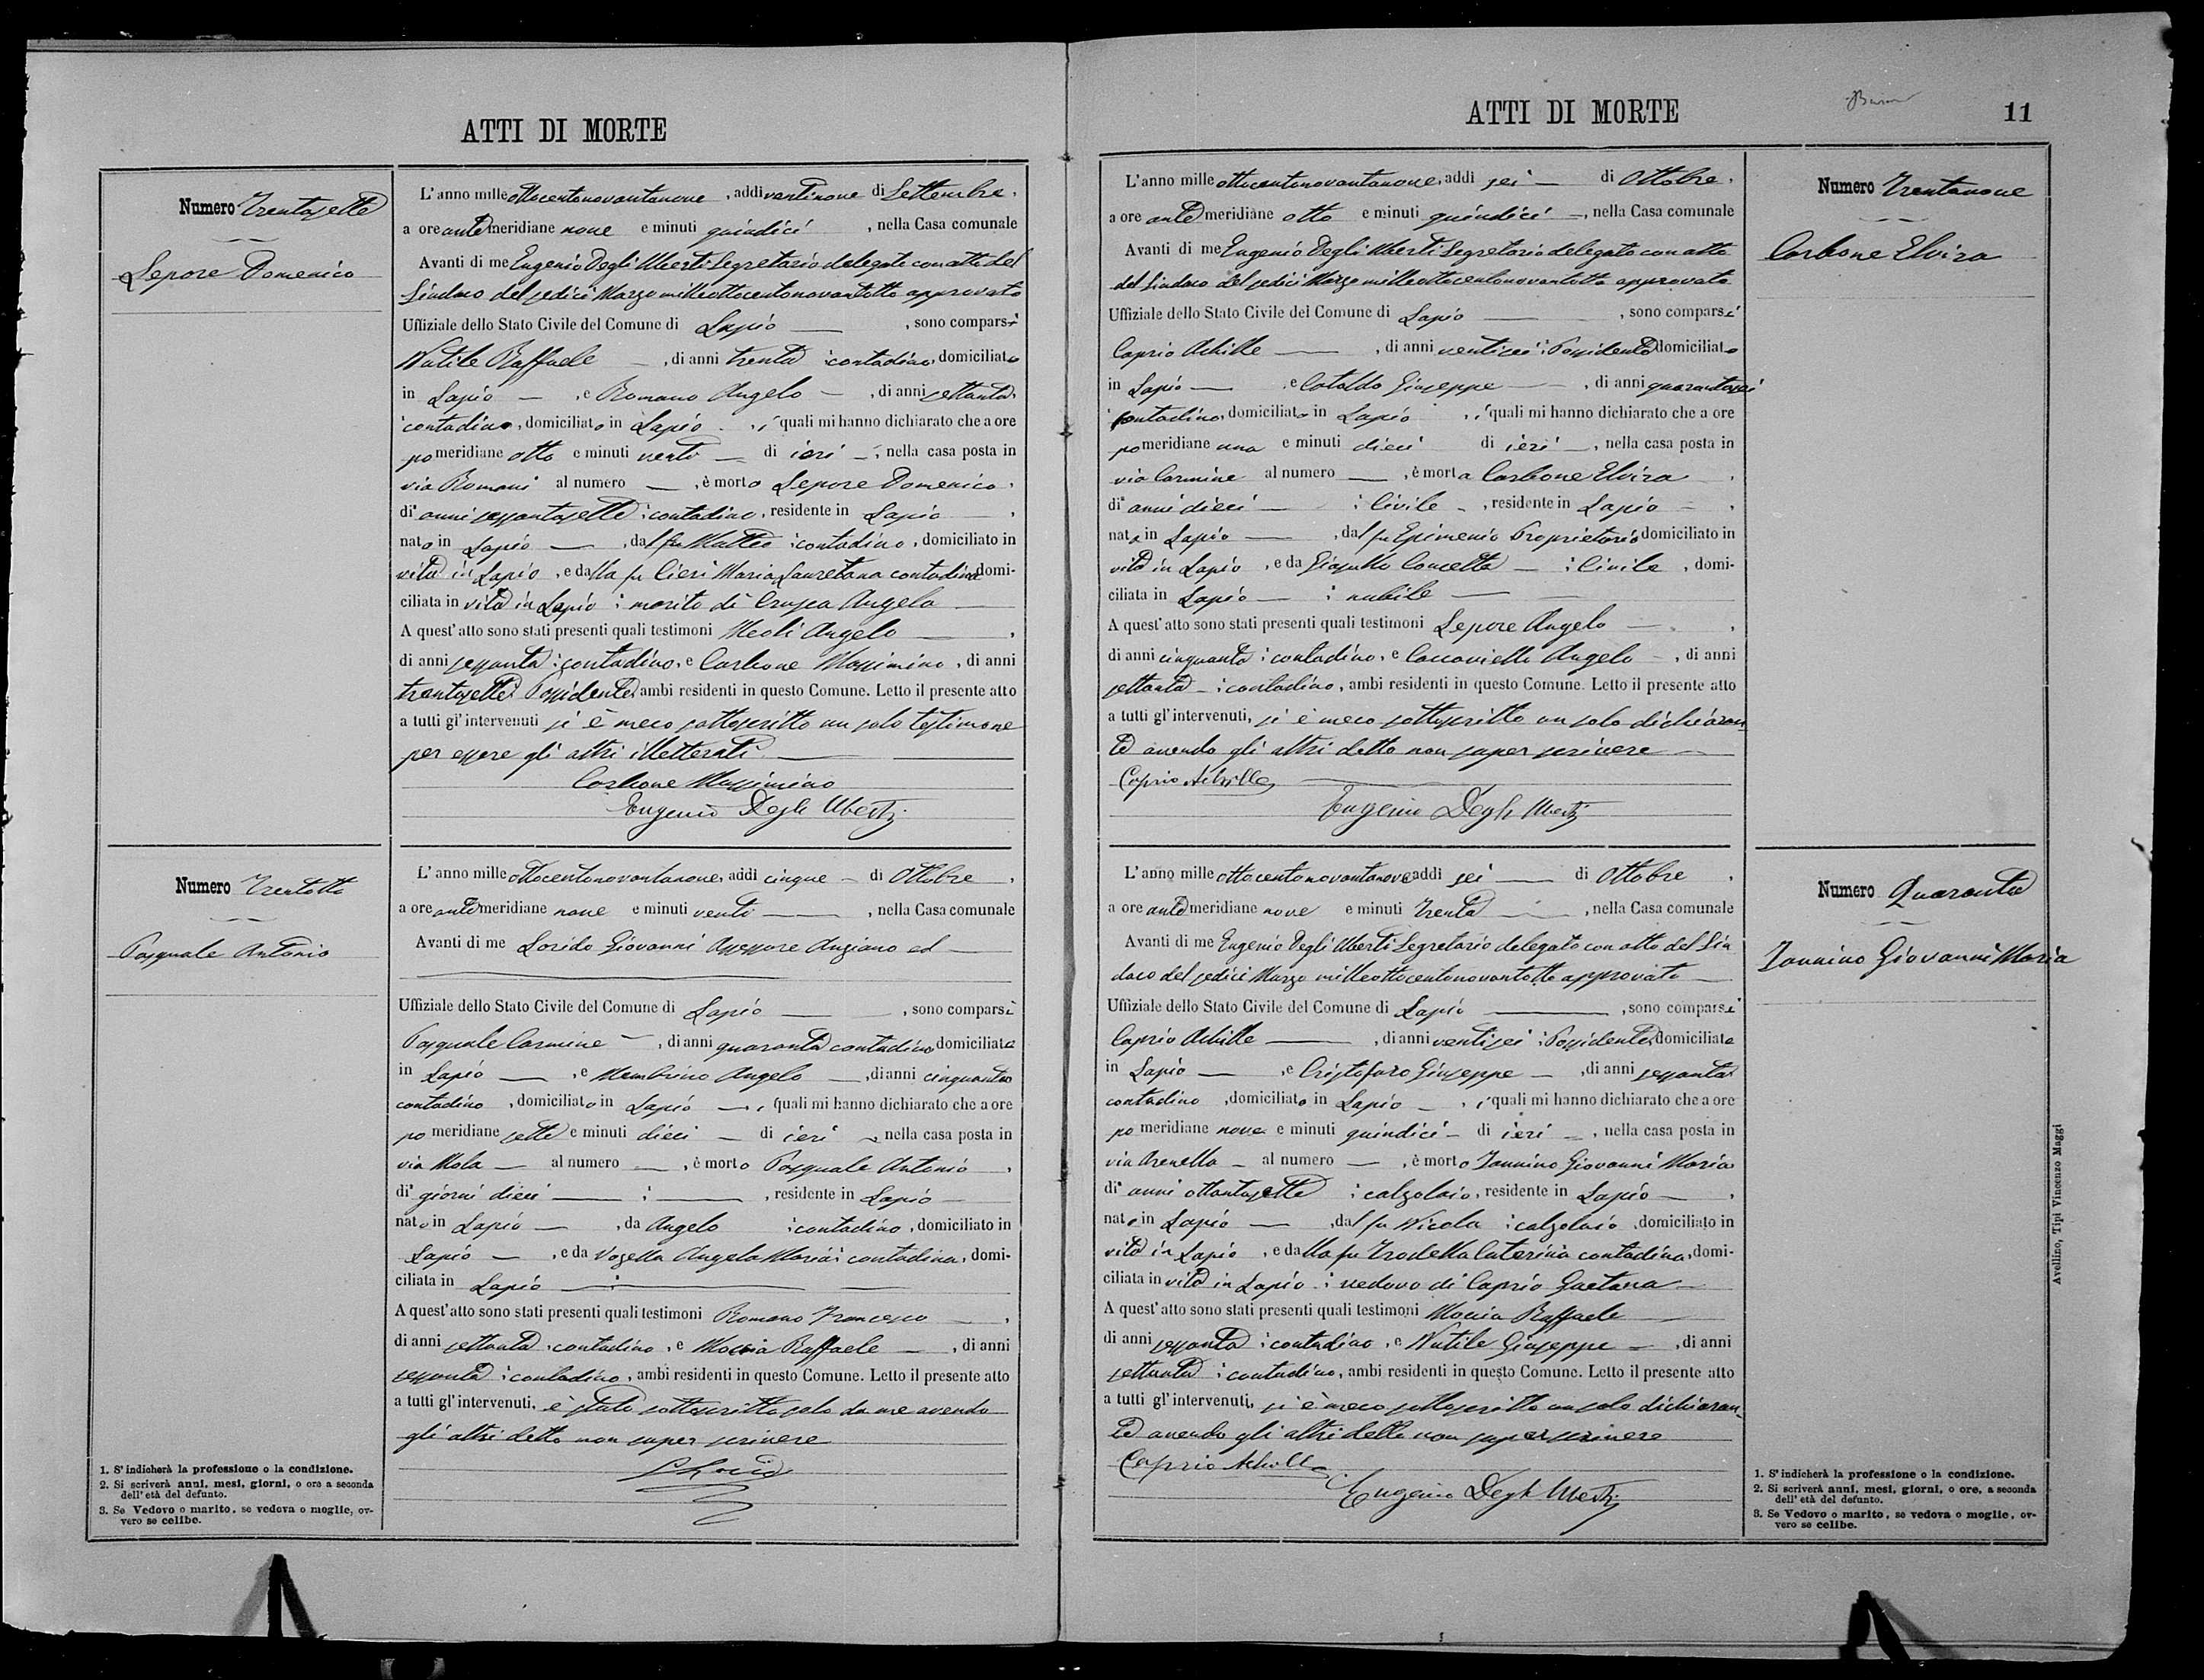 ATTI DI MORTE
Numero Trentasette
Lepore Domenico
L'anno mille ottocentonovantanove, addì ventinove di Settembre,
a ore antimeridiane nove e minuti quindici, nella Casa comunale
Avanti di me Eugenio Degli Uberti Segretario delegato con atto del
Sindaco del sedici Marzo milleottocentonovantotto approvato
Uffiziale dello Stato Civile del Comune di Lapio, sono comparsi
Nutile Raffaele, di anni trenta contadino, domiciliato
in Lapio, e Romano Angelo, di anni settanta,
contadino, domiciliato in Lapio, i quali mi hanno dichiarato che a ore
pomeridiane otto e minuti venti di ieri, nella casa posta in
via Romani al numero —, è morto Lepore Domenico,
di anni sessantasette contadino, residente in Lapio,
nato in Lapio, dal fu Matteo contadino, domiciliato in
vita in Lapio, e dalla fu Cieri Maria Lauretana contadina, domi-
ciliata in vita in Lapio marito di Crusca Angela
A quest'atto sono stati presenti quali testimoni Meoli Angelo,
di anni sessanta contadino, e Carbone Massimino, di anni
trentasette Possidente, ambi residenti in questo Comune. Letto il presente atto
a tutti gl'intervenuti si è meco sottoscritto un solo testimone
per essere gli altri illetterati.
Carbone Massimino
Eugenio Degli Uberti
Numero Trentotto
Pasquale Antonio
L'anno mille ottocentonovantanove, addì cinque di Ottobre,
a ore antimeridiane nove e minuti venti, nella Casa comunale
Avanti di me Lorido Giovanni Assessore Anziano ed
Uffiziale dello Stato Civile del Comune di Lapio, sono comparsi
Pasquale Carmine, di anni quaranta contadino domiciliato
in Lapio, e Membrino Angelo, di anni cinquanta
contadino, domiciliato in Lapio, i quali mi hanno dichiarato che a ore
pomeridiane sette e minuti dieci di ieri, nella casa posta in
via Mola al numero —, è morto Pasquale Antonio,
di giorni dieci, residente in Lapio
nato in Lapio, da Angelo contadino, domiciliato in
Lapio, e da Vozella Angela Maria contadina, domi-
ciliata in Lapio
A quest'atto sono stati presenti quali testimoni Romano Francesco,
di anni settanta, contadino, e Moccia Raffaele, di anni
sessanta contadino, ambi residenti in questo Comune. Letto il presente atto
a tutti gl'intervenuti, è stato sottoscritto solo da me avendo
gli altri detto non saper scrivere
1. S'indicherà la professione o la condizione.
2. Si scriverà anni, mesi, giorni, o ore a seconda
dell'età del defunto.
3. Se Vedovo o marito, se vedova o moglie, ov-
vero se celibe.
ATTI DI MORTE
11
L'anno mille ottocentonovantanove, addì sei di Ottobre,
a ore antimeridiane otto e minuti quindici, nella Casa comunale
Avanti di me Eugenio Degli Uberti Segretario delegato con atto
del Sindaco del sedici Marzo milleottocentonovantotto approvato
Uffiziale dello Stato Civile del Comune di Lapio, sono comparsi
Caprio Achille, di anni ventisei Possidente domiciliato
in Lapio, e Cataldo Giuseppe, di anni quarantasei
contadino, domiciliato in Lapio, i quali mi hanno dichiarato che a ore
pomeridiane una e minuti dieci di ieri, nella casa posta in
via Carmine al numero —, è morta Carbone Elvira,
di anni dieci Civile, residente in Lapio,
nata in Lapio, dal fu Epimenio Proprietario domiciliato in
vita in Lapio, e da Concetta Civile, domi-
ciliata in Lapio nubile
A quest'atto sono stati presenti quali testimoni Lepore Angelo,
di anni cinquanta contadino, e Coccaviello Angelo, di anni
settanta contadino, ambi residenti in questo Comune. Letto il presente atto
a tutti gl'intervenuti, si è meco sottoscritto un solo dichiaran-
te avendo gli altri detto non saper scrivere
Caprio Achille
Eugenio Degli Uberti
Numero Trentanove
Carbone Elvira
L'anno mille ottocentonovantanove addì sei di Ottobre,
a ore antimeridiane nove e minuti trenta, nella Casa comunale
Avanti di me Eugenio Degli Uberti Segretario delegato con atto del Sin
daco del sedici Marzo milleottocentonovantotto approvato
Uffiziale dello Stato Civile del Comune di Lapio, sono comparsi
Caprio Achille, di anni ventisei Possidente, domiciliato
in Lapio, e Cristofaro Giuseppe, di anni sessanta
contadino, domiciliato in Lapio, i quali mi hanno dichiarato che a ore
pomeridiane nove e minuti quindici di ieri, nella casa posta in
via Arenella al numero —, è morto Iannino Giovanni Maria
di anni ottantasette calzolaio, residente in Lapio,
nato in Lapio, dal fu Nicola calzolaio, domiciliato in
vita in Lapio, e dalla fu Trodella Caterina contadina, domi-
ciliata in vita in Lapio vedovo di Caprio Gaetana
A quest'atto sono stati presenti quali testimoni Moccia Raffaele
di anni sessanta contadino, e Nutile Giuseppe, di anni
settanta contadino, ambi residenti in questo Comune. Letto il presente atto
a tutti gl'intervenuti, si è meco sottoscritto un solo dichiaran-
te avendo gli altri detto non saper scrivere
Caprio Achille
Eugenio Degli Uberti
Numero Quaranta
Iannino Giovanni Maria
1. S'indicherà la professione o la condizione.
2. Si scriverà anni, mesi, giorni, o ore, a seconda
dell'età del defunto.
3. Se Vedovo o marito, se vedova o moglie, ov-
vero se celibe.
Avellino, Tipi Vincenzo Maggi